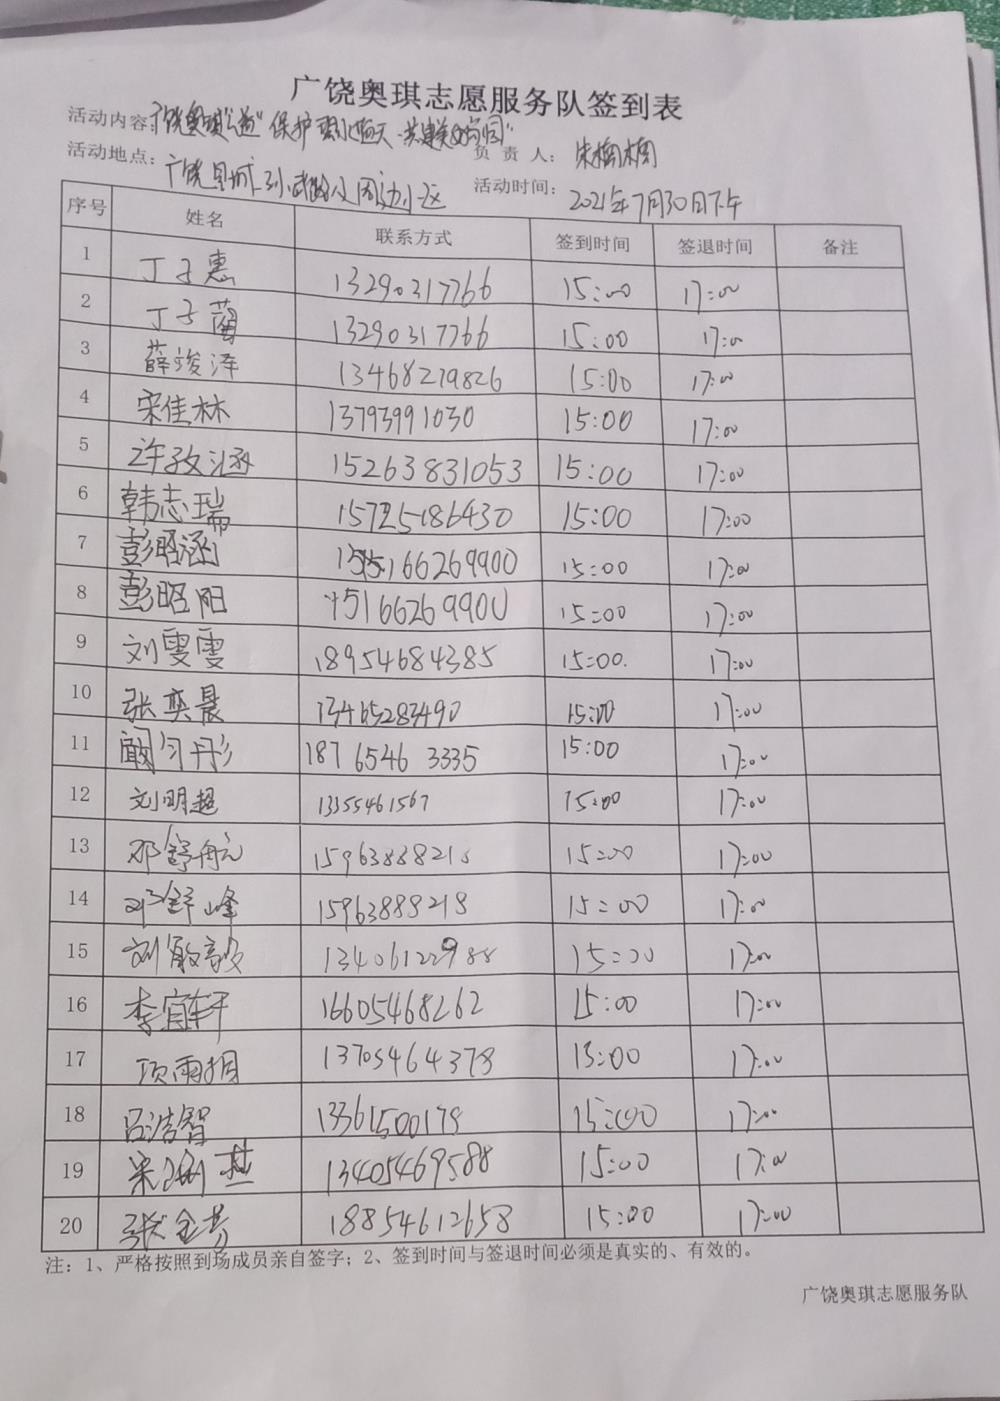 广饶奥琪志愿服务队签到表
活动内容：广饶奥琪公益"保护碧水蓝天 共建美好家园"
负责人：
活动地点：广饶县城孙武路及周边小区
活动时间：2021年7月30日下午
序号 姓名 联系方式 签到时间 签退时间 备注
1 丁子惠 13290317766 15:00 17:00
2 丁子蔺 13290317766 15:00 17:00
3 薛竣泽 13468279826 15:00 17:00
4 宋佳林 13793991030 15:00 17:00
5 许孜涵 15263831053 15:00 17:00
6 韩志瑞 15725186430 15:00 17:00
7 彭昭涵 15166269900 15:00 17:00
8 彭昭阳 15166269900 15:00 17:00
9 刘雯雯 18954684385 15:00. 17:00
10 张奕晨 13465283490 15:00 17:00
11 阚习彤 18765463335 15:00 17:00
12 刘明超 13355461567 15:00 17:00
13 邓舒航 15963888218 15:00 17:00
14 邓舒峰 15963888218 15:00 17:00
15 刘敏毅 13406122988 15:00 17:00
16 李宜轩 16605468262 15:00 17:00
17 项雨桐 13705464378 15:00 17:00
18 吕浩智 13361500178 15:00 17:00
19 13405469588 15:00 17:00
20 张金芳 18854612658 15:00 17:00
注：1、严格按照到场成员亲自签字；2、签到时间与签退时间必须是真实的、有效的。
广饶奥琪志愿服务队